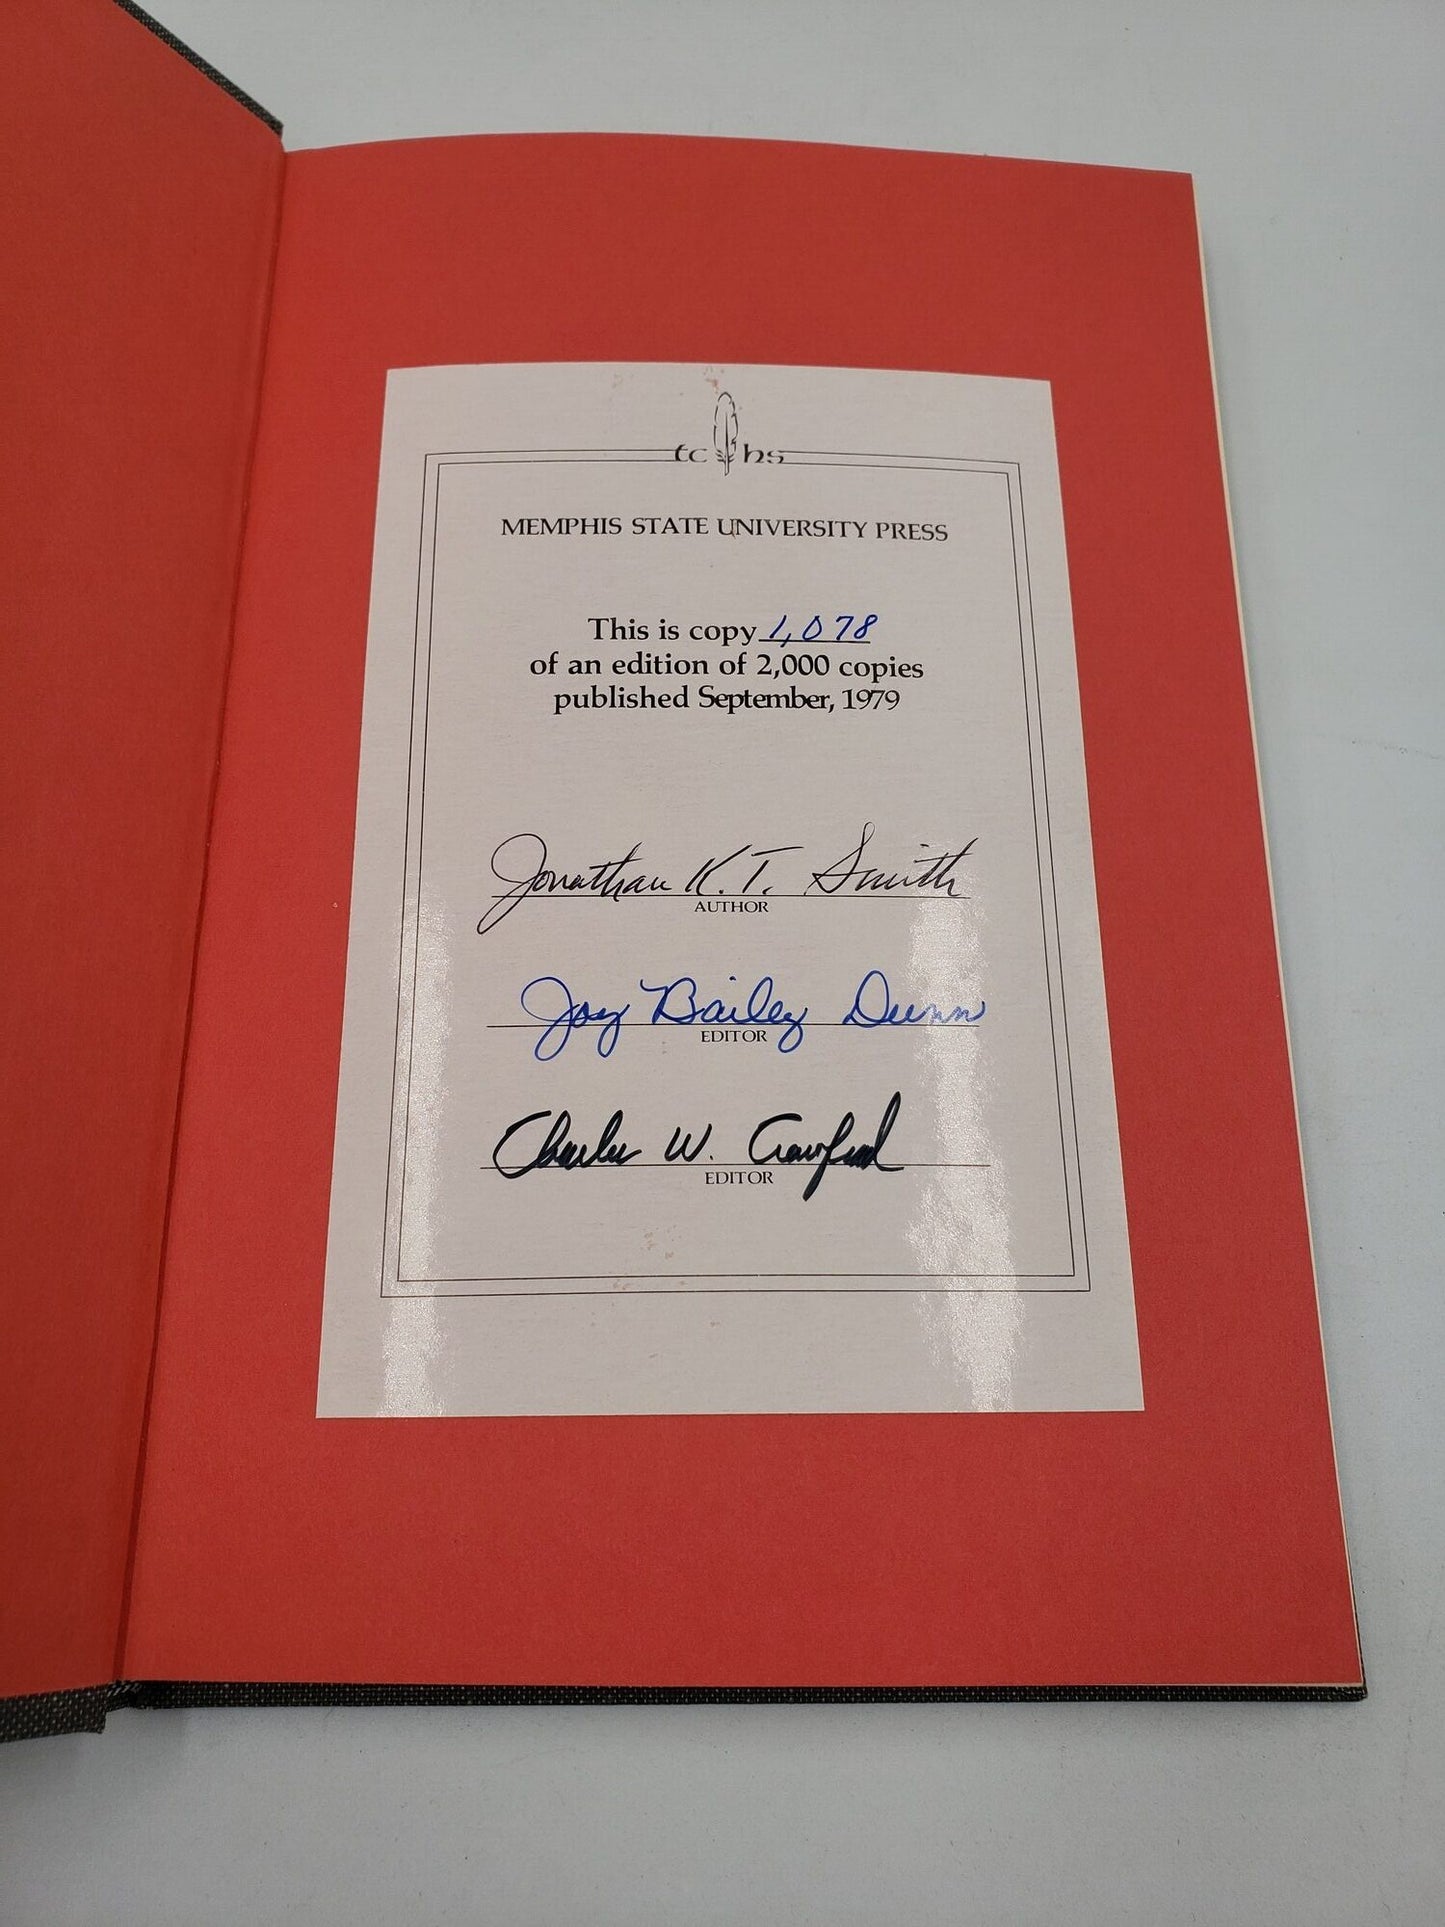 tc hs
MEMPHIS STATE UNIVERSITY PRESS
This is copy 1,078
of an edition of 2,000 copies
published September, 1979
Jonathan K. T. Smith
AUTHOR
Joy Bailey Dunn
EDITOR
Charles W. Crawford
EDITOR